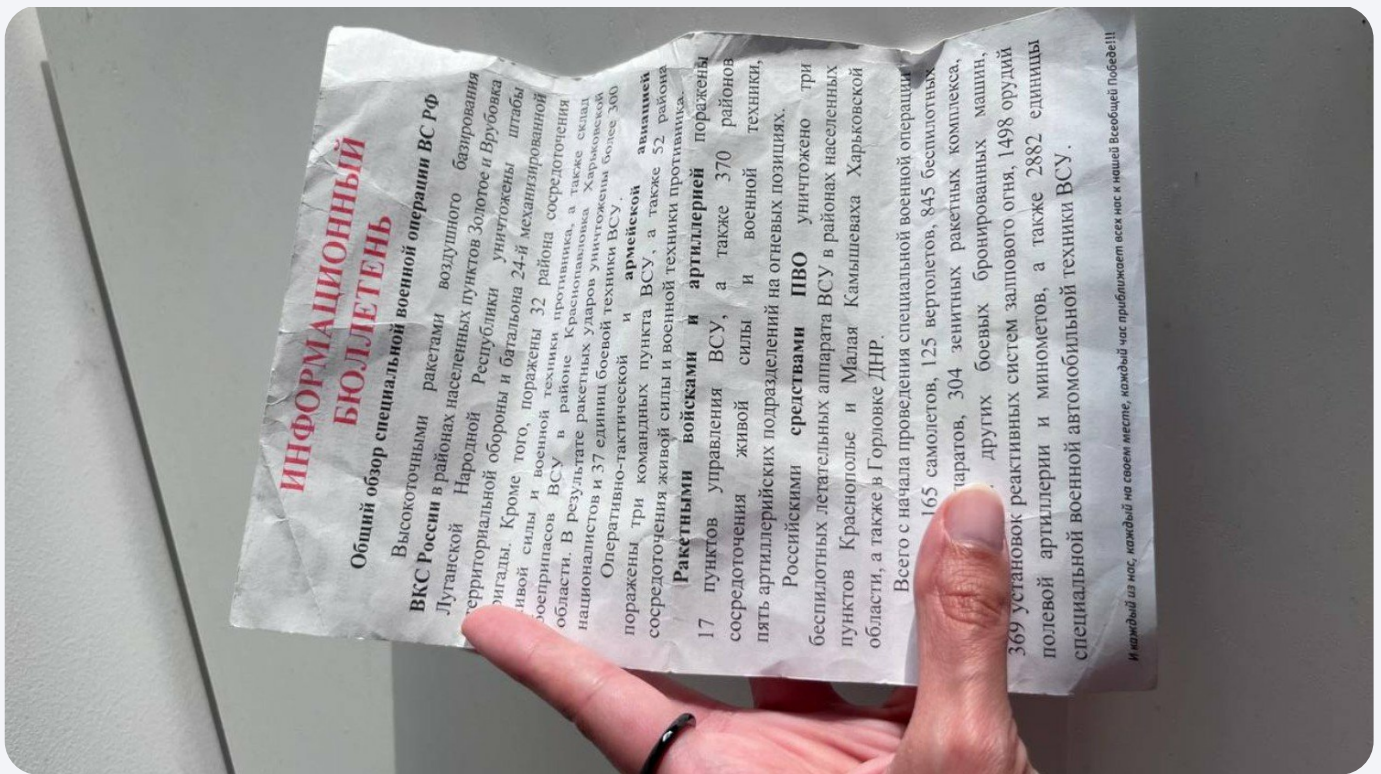 ИНФОРМАЦИОННЫЙ
БЮЛЛЕТЕНЬ
Общий обзор специальной военной операции ВС РФ
Высокоточными ракетами воздушного базирования
ВКС России в районах населенных пунктов Золотое и Врубовка
Луганской Народной Республики уничтожены штабы
территориальной обороны и батальона 24-й механизированной
ригады. Кроме того, поражены 32 района сосредоточения
ивой силы и военной техники противника, а также склад
боеприпасов ВСУ в районе Краснопавловка Харьковской
области. В результате ракетных ударов уничтожены более 300
националистов и 37 единиц боевой техники ВСУ.
Оперативно-тактической и армейской авиацией
поражены три командных пункта ВСУ, а также 52 района
сосредоточения живой силы и военной техники противника.
Ракетными войсками и артиллерией поражены
17 пунктов управления ВСУ, а также 370 районов
сосредоточения живой силы и военной техники,
пять артиллерийских подразделений на огневых позициях.
Российскими средствами ПВО уничтожено три
беспилотных летательных аппарата ВСУ в районах населенных
пунктов Краснополье и Малая Камышеваха Харьковской
области, а также в Горловке ДНР.
Всего с начала проведения специальной военной операции
165 самолетов, 125 вертолетов, 845 беспилотных
паратов, 304 зенитных ракетных комплекса,
других боевых бронированных машин,
369 установок реактивных систем залпового огня, 1498 орудий
полевой артиллерии и минометов, а также 2882 единицы
специальной военной автомобильной техники ВСУ.
И каждый из нас, каждый на своем месте, каждый час приближает всех нас к нашей Всеобщей Победе!!!